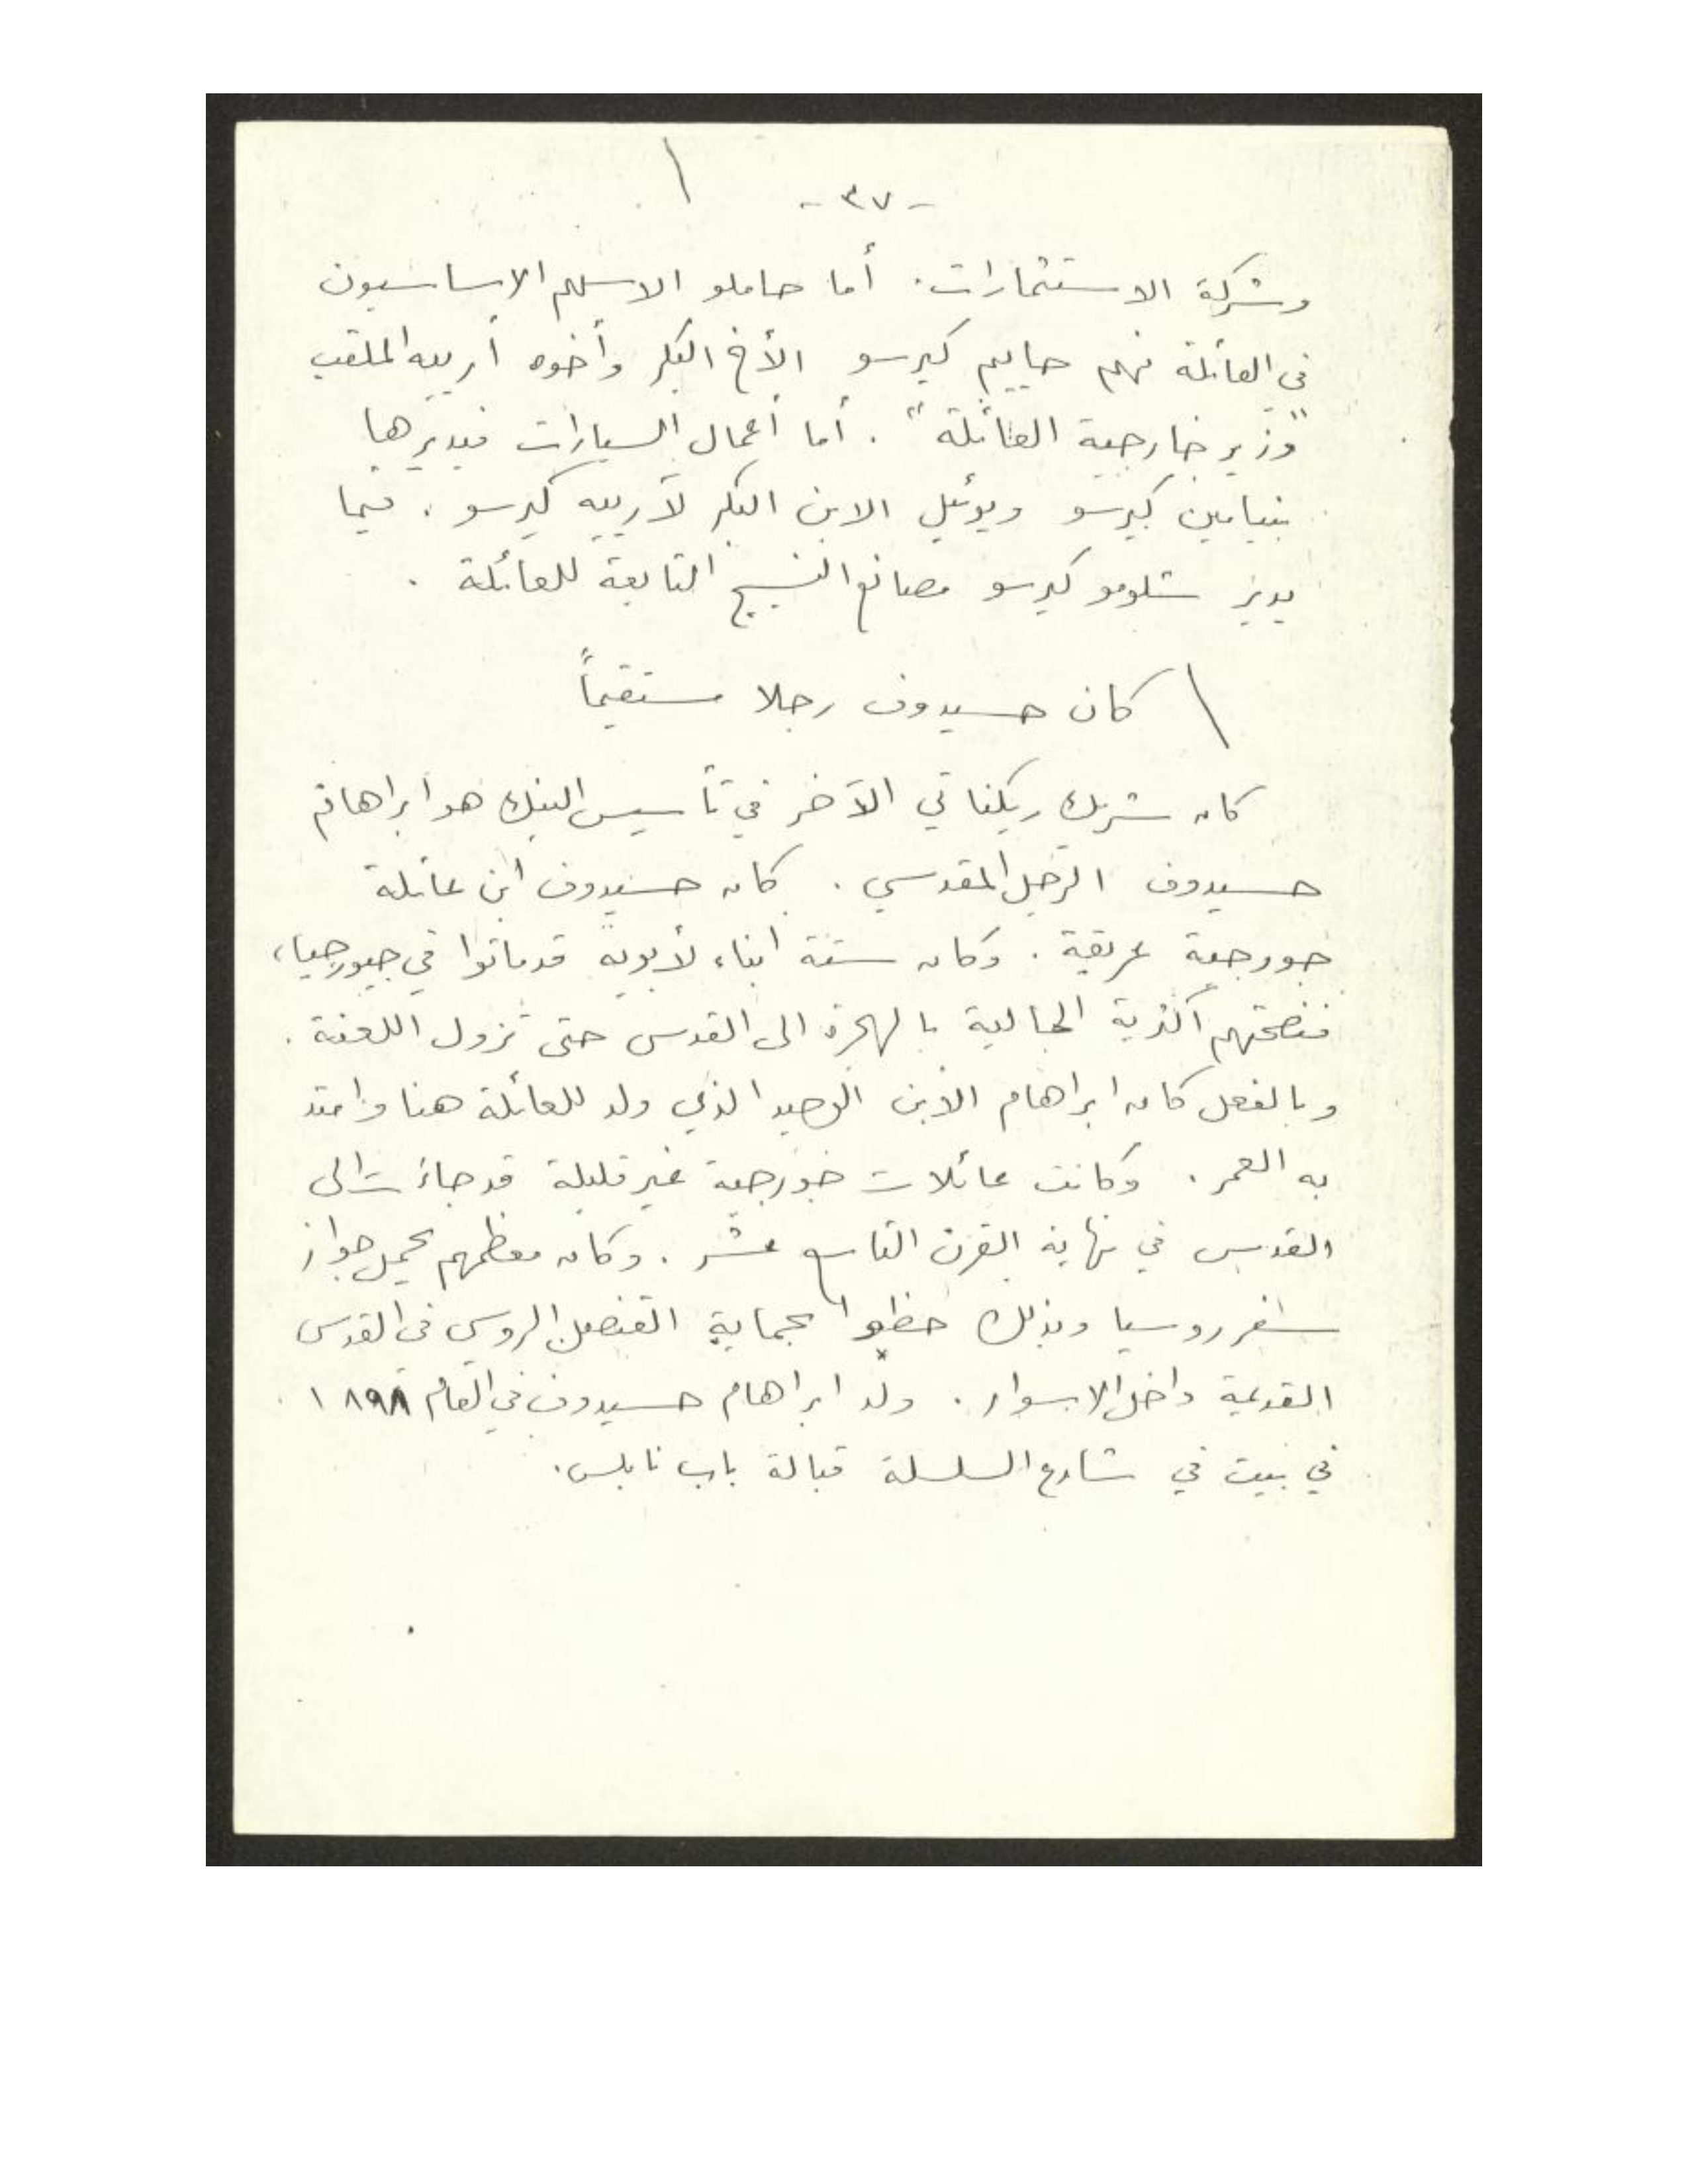 - ٣٧ -
وشركة الاستثمارات. أما حاملو الاسهم الاساسيون
في العائلة فهم حاييم كيرسو الأخ البكر وأخوه أرييه الملقب
"وزير خارجية العائلة". أما أعمال السيارات فيديرها
بنيامين كيرسو ويوئيل الابن البكر لآرييه كيرسو. فيما
يدير شلومو كيرسو مصانع النسيج التابعة للعائلة.
كان حسيدوف رجلا مستقيماً
كان شريك ريكناتي الآخر في تأسيس البنك هو ابراهام
حسيدوف الرجل المقدسي. كان حسيدوف ابن عائلة
جورجية عريقة. وكان ستة ابناء لأبويه قد ماتوا في جيورجيا،
فنصحتهم أكثرية الجالية بالهجرة الى القدس حتى تزول اللعنة.
وبالفعل كان ابراهام الابن الوحيد الذي ولد للعائلة هنا وامتد
به العمر. وكانت عائلات جورجية غير قليلة قد جاءت الى
القدس في نهاية القرن التاسع عشر. وكان معظمهم يحمل جواز
سفر روسيا وبذلك حظوا بحماية القنصل الروسي في القدس
القديمة داخل الاسوار. ولد ابراهام حسيدوف في العام ١٨٩٨
في بيت في شارع السلسلة قبالة باب نابلس.